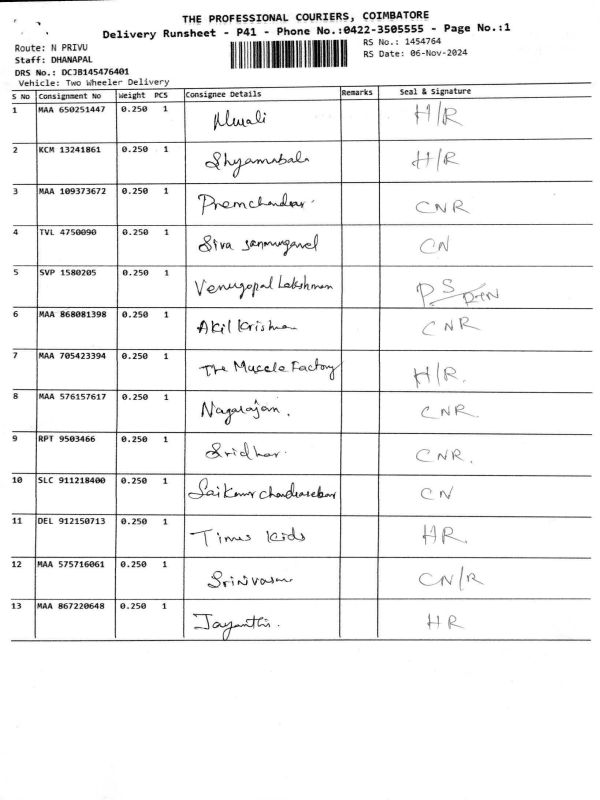 THE PROFESSIONAL COURIERS, COIMBATORE
Delivery Runsheet - P41 - Phone No.:0422-3505555 - Page No.:1
Route: N PRIVU
RS No.: 1454764
Staff: DHANAPAL
RS Date: 06-Nov-2024
DRS No.: DCJB145476401
Vehicle: Two Wheeler Delivery
S No Consignment No Weight PCS Consignee Details Remarks Seal & Signature
1 MAA 650251447 0.250 1 Murali H/R
2 KCM 13241861 0.250 1 Shyamabala H/R
3 MAA 109373672 0.250 1 Premchandran CNR
4 TVL 4750090 0.250 1 Siva Sanmuganel CN
5 SVP 1580205 0.250 1 Venugopal Lakshman PS
6 MAA 868081398 0.250 1 Akil Krishnan CNR
7 MAA 705423394 0.250 1 The Muscle Factory H/R.
8 MAA 576157617 0.250 1 Nagarajan. CNR.
9 RPT 9503466 0.250 1 Sridhar. CNR.
10 SLC 911218400 0.250 1 Saikumar Chandrasekar CN
11 DEL 912150713 0.250 1 Times Kids HR.
12 MAA 575716061 0.250 1 Srinivasan CN/R
13 MAA 867220648 0.250 1 Jayanthi. HR